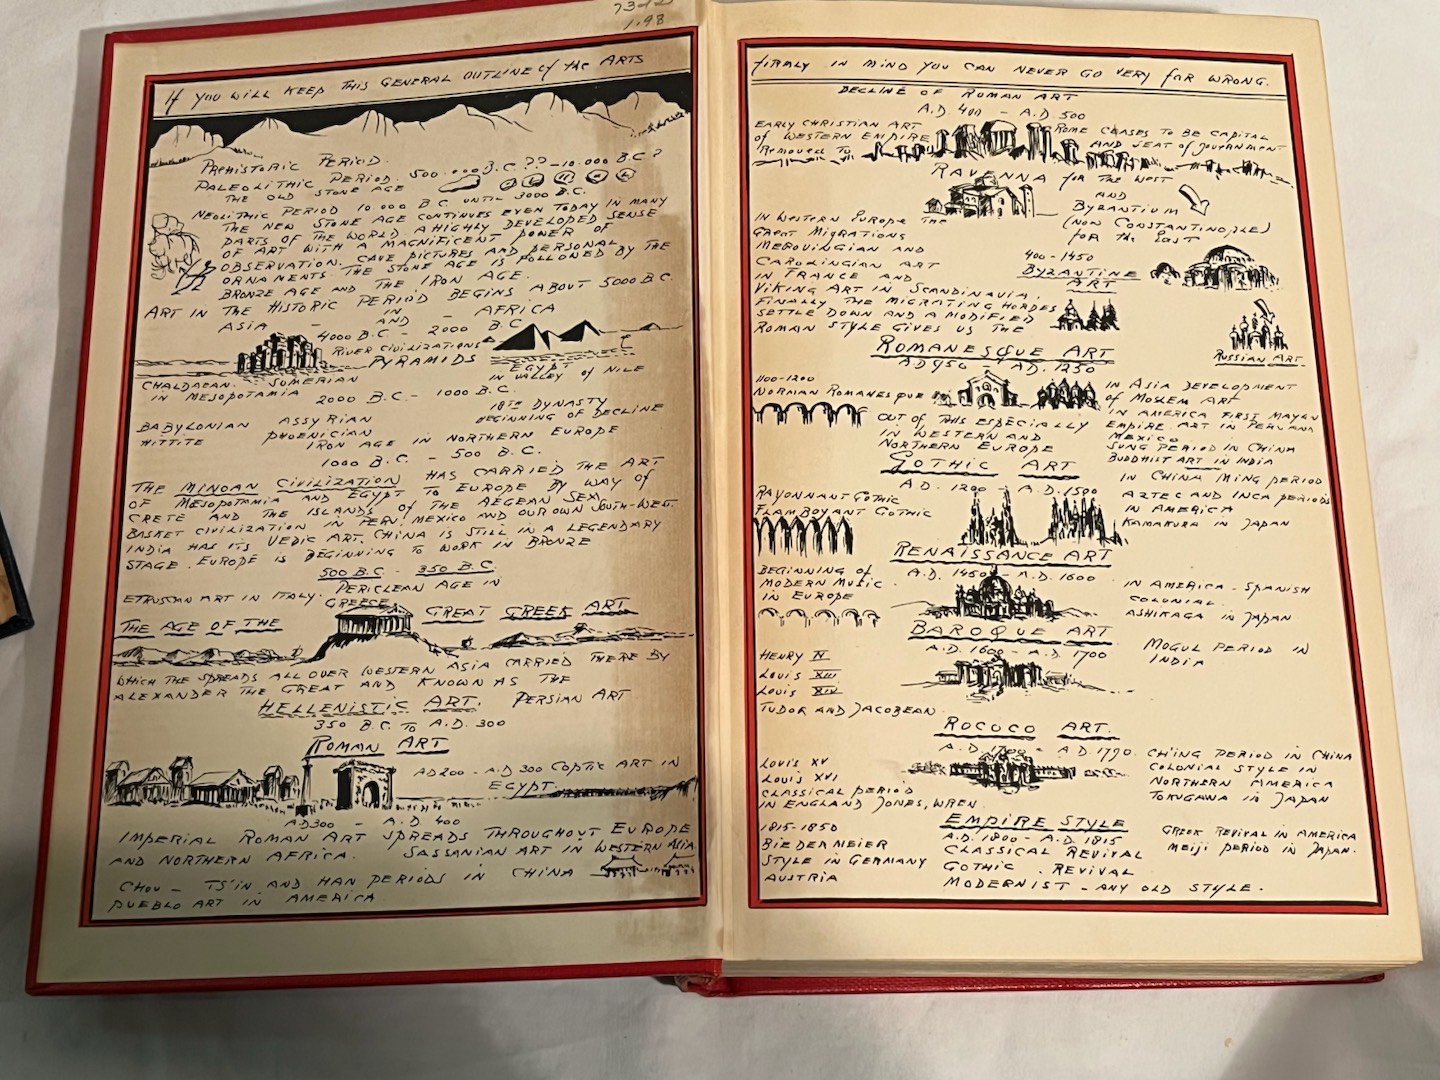 1.98
If YOU WILL KEEP THIS GENERAL OUTLINE of the ARTS
PREHISTORIC PERIOD.
PALEOLITHIC PERIOD. 500.000 B.C.?? - 10.000 B.C?
THE OLD STONE AGE
NEOLITHIC PERIOD 10.000 B.C UNTIL 3000 B.C.
THE NEW STONE AGE CONTINUES EVEN TODAY IN MANY
PARTS OF THE WORLD A HIGHLY DEVELOPED SENSE
OF ART WITH A MAGNIFICENT POWER OF
OBSERVATION. CAVE PICTURES AND PERSONAL
ORNAMENTS THE STONE AGE IS FOLLOWED BY THE
BRONZE AGE AND THE IRON AGE.
ART IN THE HISTORIC PERIOD BEGINS ABOUT 5000 B.C.
IN
ASIA - AND - AFRICA
4000 B.C - 2000 B.C
RIVER CIVILIZATIONS
PYRAMIDS
EGYPT
IN VALLEY of NILE
CHALDAEAN. SUMERIAN
IN MESOPOTAMIA
2000 B.C. - 1000 B.C.
18TH DYNASTY
BEGINNING OF DECLINE
BABYLONIAN ASSYRIAN
HITTITE PHOENICIAN
IRON AGE IN NORTHERN EUROPE
1000 B.C. - 500 B.C.
THE MINOAN CIVILIZATION HAS CARRIED THE ART
OF MESOPOTAMIA AND EGYPT TO EUROPE BY WAY of
CRETE AND THE ISLANDS of THE AEGEAN SEA
BASKET CIVILIZATION IN PERU, MEXICO AND OUR OWN SOUTH-WEST.
INDIA HAS ITS VEDIC ART. CHINA IS STILL IN A LEGENDARY
STAGE. EUROPE IS BEGINNING TO WORK IN BRONZE
500 B.C. - 350 B.C
PERICLEAN AGE IN
ETRUSCAN ART IN ITALY. GREECE
THE AGE OF THE GREAT GREEK ART
WHICH THE SPREADS ALL OVER WESTERN ASIA CARRIED THERE BY
ALEXANDER THE GREAT AND KNOWN AS THE
HELLENISTIC ART. PERSIAN ART
350 B.C. TO A.D. 300
ROMAN ART
AD 200 - A.D 300 COPTIC ART IN
EGYPT.
A.D 300 - A.D. 400
IMPERIAL ROMAN ART SPREADS THROUGHOUT EUROPE
AND NORTHERN AFRICA. SASSANIAN ART IN WESTERN ASIA.
CHOU - TS'IN AND HAN PERIODS IN CHINA
PUEBLO ART IN AMERICA.
FIRMLY IN MIND YOU CAN NEVER GO VERY FAR WRONG.
DECLINE OF ROMAN ART
A.D. 400 - A.D 500
EARLY CHRISTIAN ART
of WESTERN EMPIRE
Removed To
ROME CEASES TO BE CAPITAL
AND SEAT of GOVERNMENT
RAVENNA for THE WEST
AND
BYZANTIUM
(NOW CONSTANTINOPLE)
for the EAST
IN WESTERN EUROPE THE
GREAT MIGRATIONS
MEROVINGIAN AND
CAROLINGIAN ART
IN FRANCE AND
VIKING ART IN SCANDINAVIA.
FINALLY THE MIGRATING HORDES
SETTLE DOWN AND A MODIFIED
ROMAN STYLE GIVES US THE
400-1450
BYZANTINE
ART
RUSSIAN ART.
ROMANESQUE ART
AD 950 - A.D. 1250
1100-1200
NORMAN ROMANESQUE
OUT of THIS ESPECIALLY
IN WESTERN AND
NORTHERN EUROPE
IN ASIA DEVELOPMENT
of MOSLEM ART
IN AMERICA FIRST MAYAN
EMPIRE. ART IN PERU AND
MEXICO
SUNG PERIOD IN CHINA
BUDDHIST ART IN INDIA
GOTHIC ART
A.D. 1200 - A.D. 1500
RAYONNANT GOTHIC
FLAMBOYANT GOTHIC
IN CHINA MING PERIOD
AZTEC AND INCA PERIODS
IN AMERICA
KAMAKURA IN JAPAN
RENAISSANCE ART
A.D. 1450 - A.D. 1600
BEGINNING of
MODERN MUSIC
IN EUROPE
IN AMERICA - SPANISH
COLONIAL.
ASHIKAGA IN JAPAN
BAROQUE ART
A.D. 1600 - A.D. 1700
HENRY IV
LOUIS XIII
LOUIS XIV
TUDOR AND JACOBEAN.
MOGUL PERIOD IN
INDIA
ROCOCO ART.
A.D. 1700 - A.D 1790.
LOUIS XV
LOUIS XVI
CLASSICAL PERIOD
IN ENGLAND JONES, WREN.
CH'ING PERIOD IN CHINA
COLONIAL STYLE IN
NORTHERN AMERICA
TOKUGAWA IN JAPAN
EMPIRE STYLE
A.D. 1800 - A.D. 1815
1815-1850
BIEDERMEIER
STYLE IN GERMANY
AUSTRIA
CLASSICAL REVIVAL
GOTHIC . REVIVAL
MODERNIST - ANY OLD STYLE.
GREEK REVIVAL IN AMERICA
MEIJI PERIOD IN JAPAN.